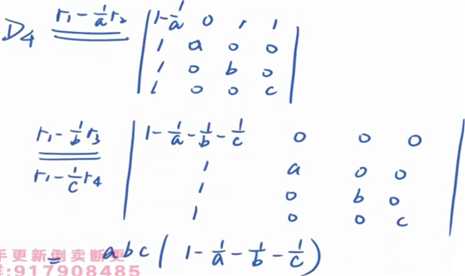 D₄ r₁-1/a r₂ | 1-1/a 0 1 1
1 a 0 0
1 0 b 0
1 0 0 c |
r₁-1/b r₃ | 1-1/a-1/b-1/c 0 0 0
r₁-1/c r₄ 1 a 0 0
1 0 b 0
1 0 0 c |
= abc(1-1/a-1/b-1/c)
更新倒卖
:917908485